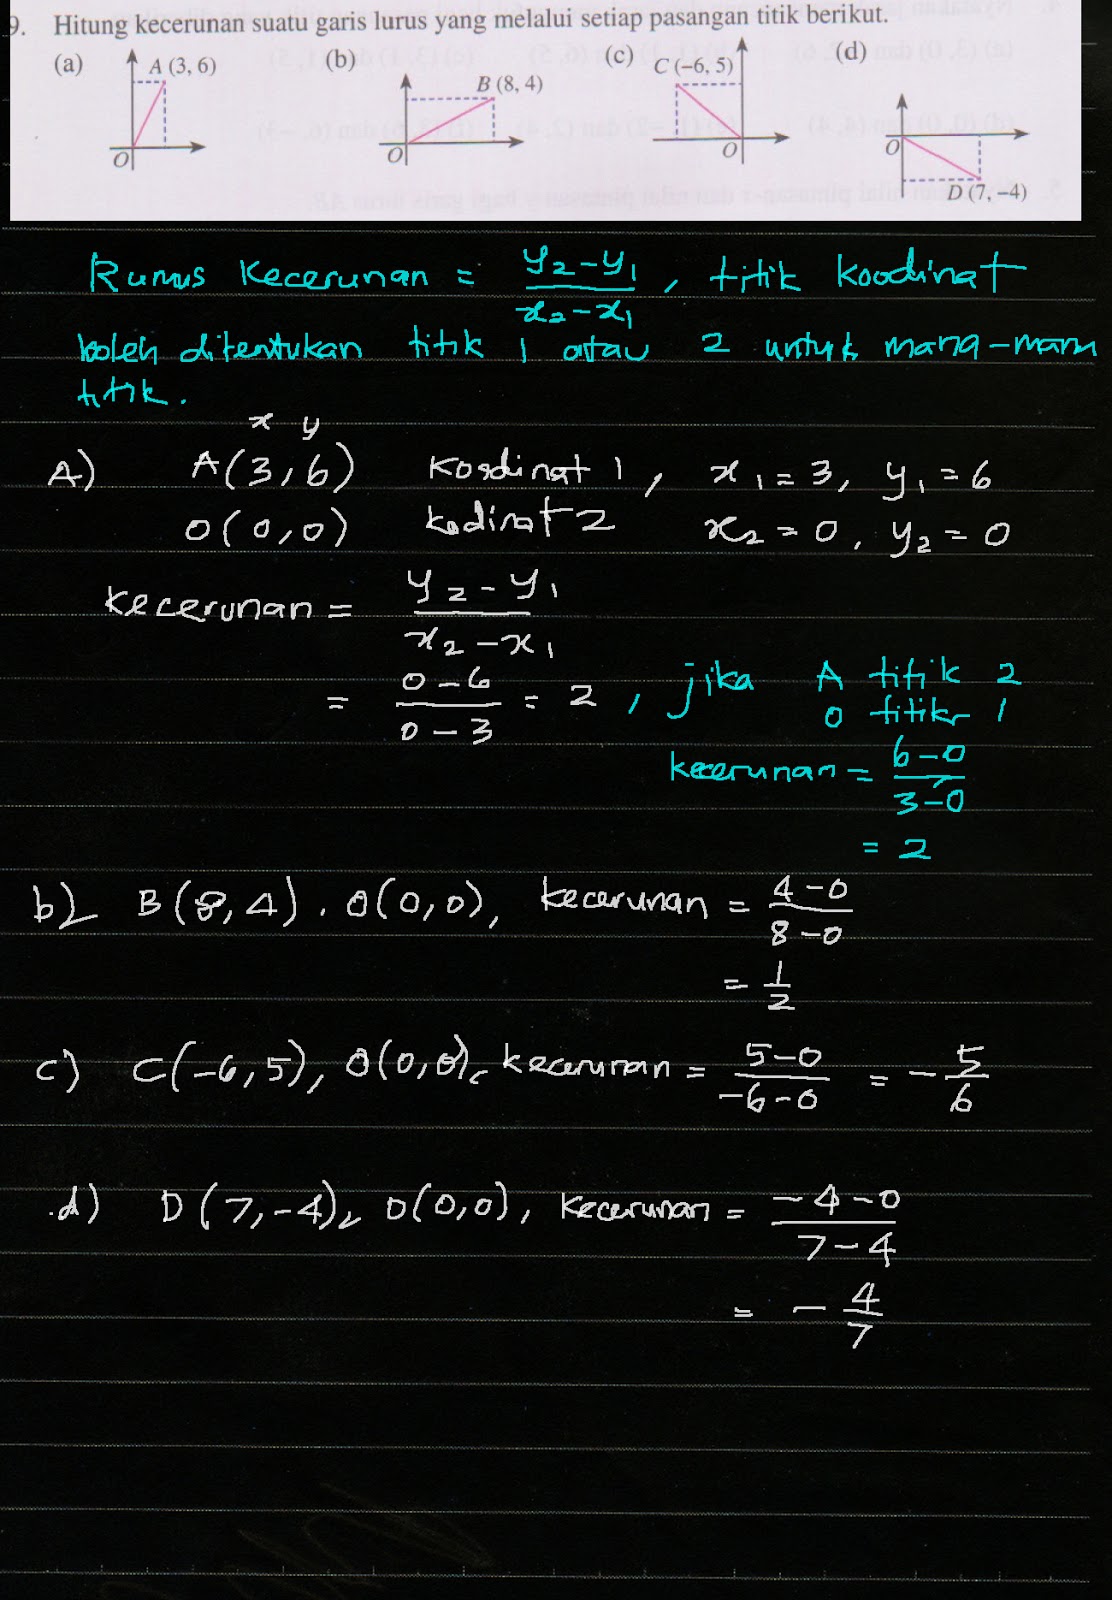 9. Hitung kecerunan suatu garis lurus yang melalui setiap pasangan titik berikut.
(a) A (3, 6) O
(b) B (8, 4) O
(c) C (−6, 5) O
(d) O D (7, −4)
Rumus Kecerunan = y2 − y1 / x2 − x1 , titik koodinat
boleh ditentukan titik 1 atau 2 untuk mana-mana
titik.
x y
A) A(3, 6) Koodinat 1, x1 = 3, y1 = 6
O(0,0) kodinat 2 x2 = 0, y2 = 0
Kecerunan = y2 − y1 / x2 − x1
= 0 − 6 / 0 − 3 = 2 , jika A titik 2
O titik 1
kecerunan = 6 − 0 / 3 − 0
= 2
b) B(8,4). O(0,0), kecerunan = 4 − 0 / 8 − 0
= 1/2
c) C(−6,5), O(0,0), kecerunan = 5 − 0 / −6 − 0 = − 5/6
d) D(7,−4), O(0,0), kecerunan = −4 − 0 / 7 − 4
= − 4/7